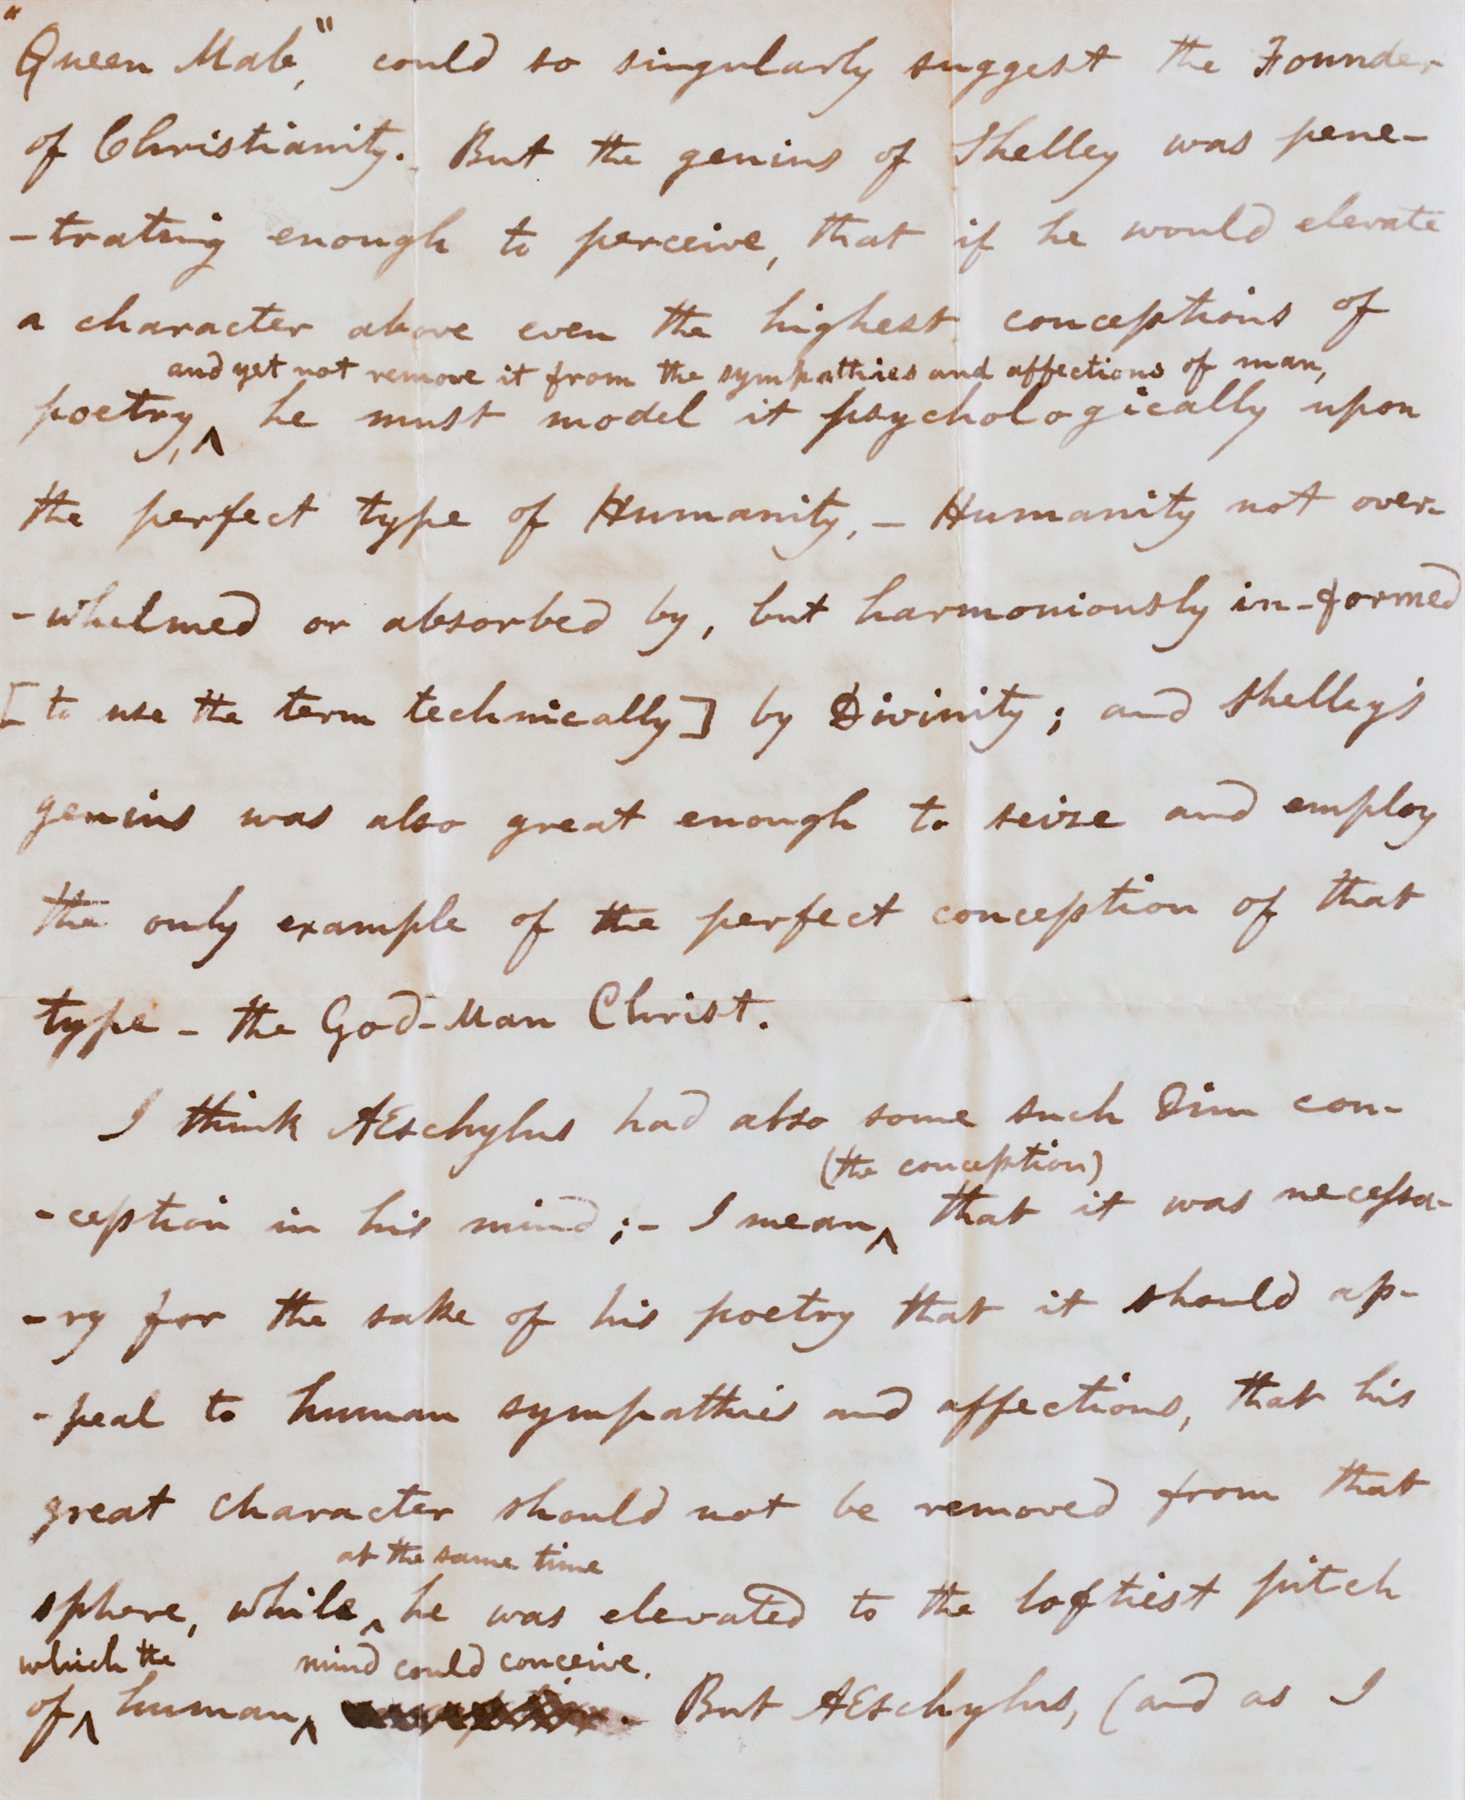 "Queen Mab," could so singularly suggest the Founder
of Christianity. But the genius of Shelley was pene-
-trating enough to perceive, that if he would elevate
a character above even the highest conceptions of
and yet not remove it from the sympathies and affections of man,
poetry,^ he must model it psychologically upon
the perfect type of Humanity, – Humanity not over-
-whelmed or absorbed by, but harmoniously in-formed
[to use the term technically] by Divinity; and Shelley's
genius was also great enough to seize and employ
the only example of the perfect conception of that
type – the God-Man Christ.
I think AEschylus had also some such dim con-
(the conception)
-ception in his mind;– I mean^ that it was necessa-
-ry for the sake of his poetry that it should ap-
-peal to human sympathies and affections, that his
great character should not be removed from that
at the same time
sphere, while^ he was elevated to the loftiest pitch
which the mind could conceive.
of^ human^ . But AEschylus, (and as I